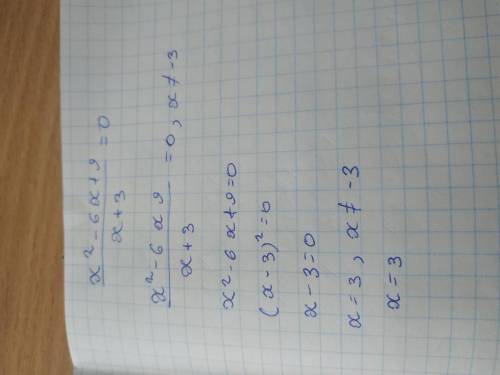 x² - 6x + 9 / x + 3 = 0
x² - 6x 9 / x + 3 = 0, x ≠ -3
x² - 6x + 9 = 0
(x - 3)² = 0
x - 3 = 0
x = 3, x ≠ -3
x = 3